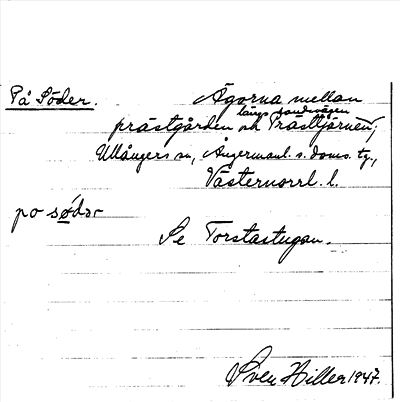 På Söder.
Ägorna mellan
längs landsvägen
prästgården och Prästtjärnen,
Ullångers sn, Ångermanl. s. doms. tg,
Västernorrl. l.
po sødər
Se Torstastugan.
Sven Hiller 1947.